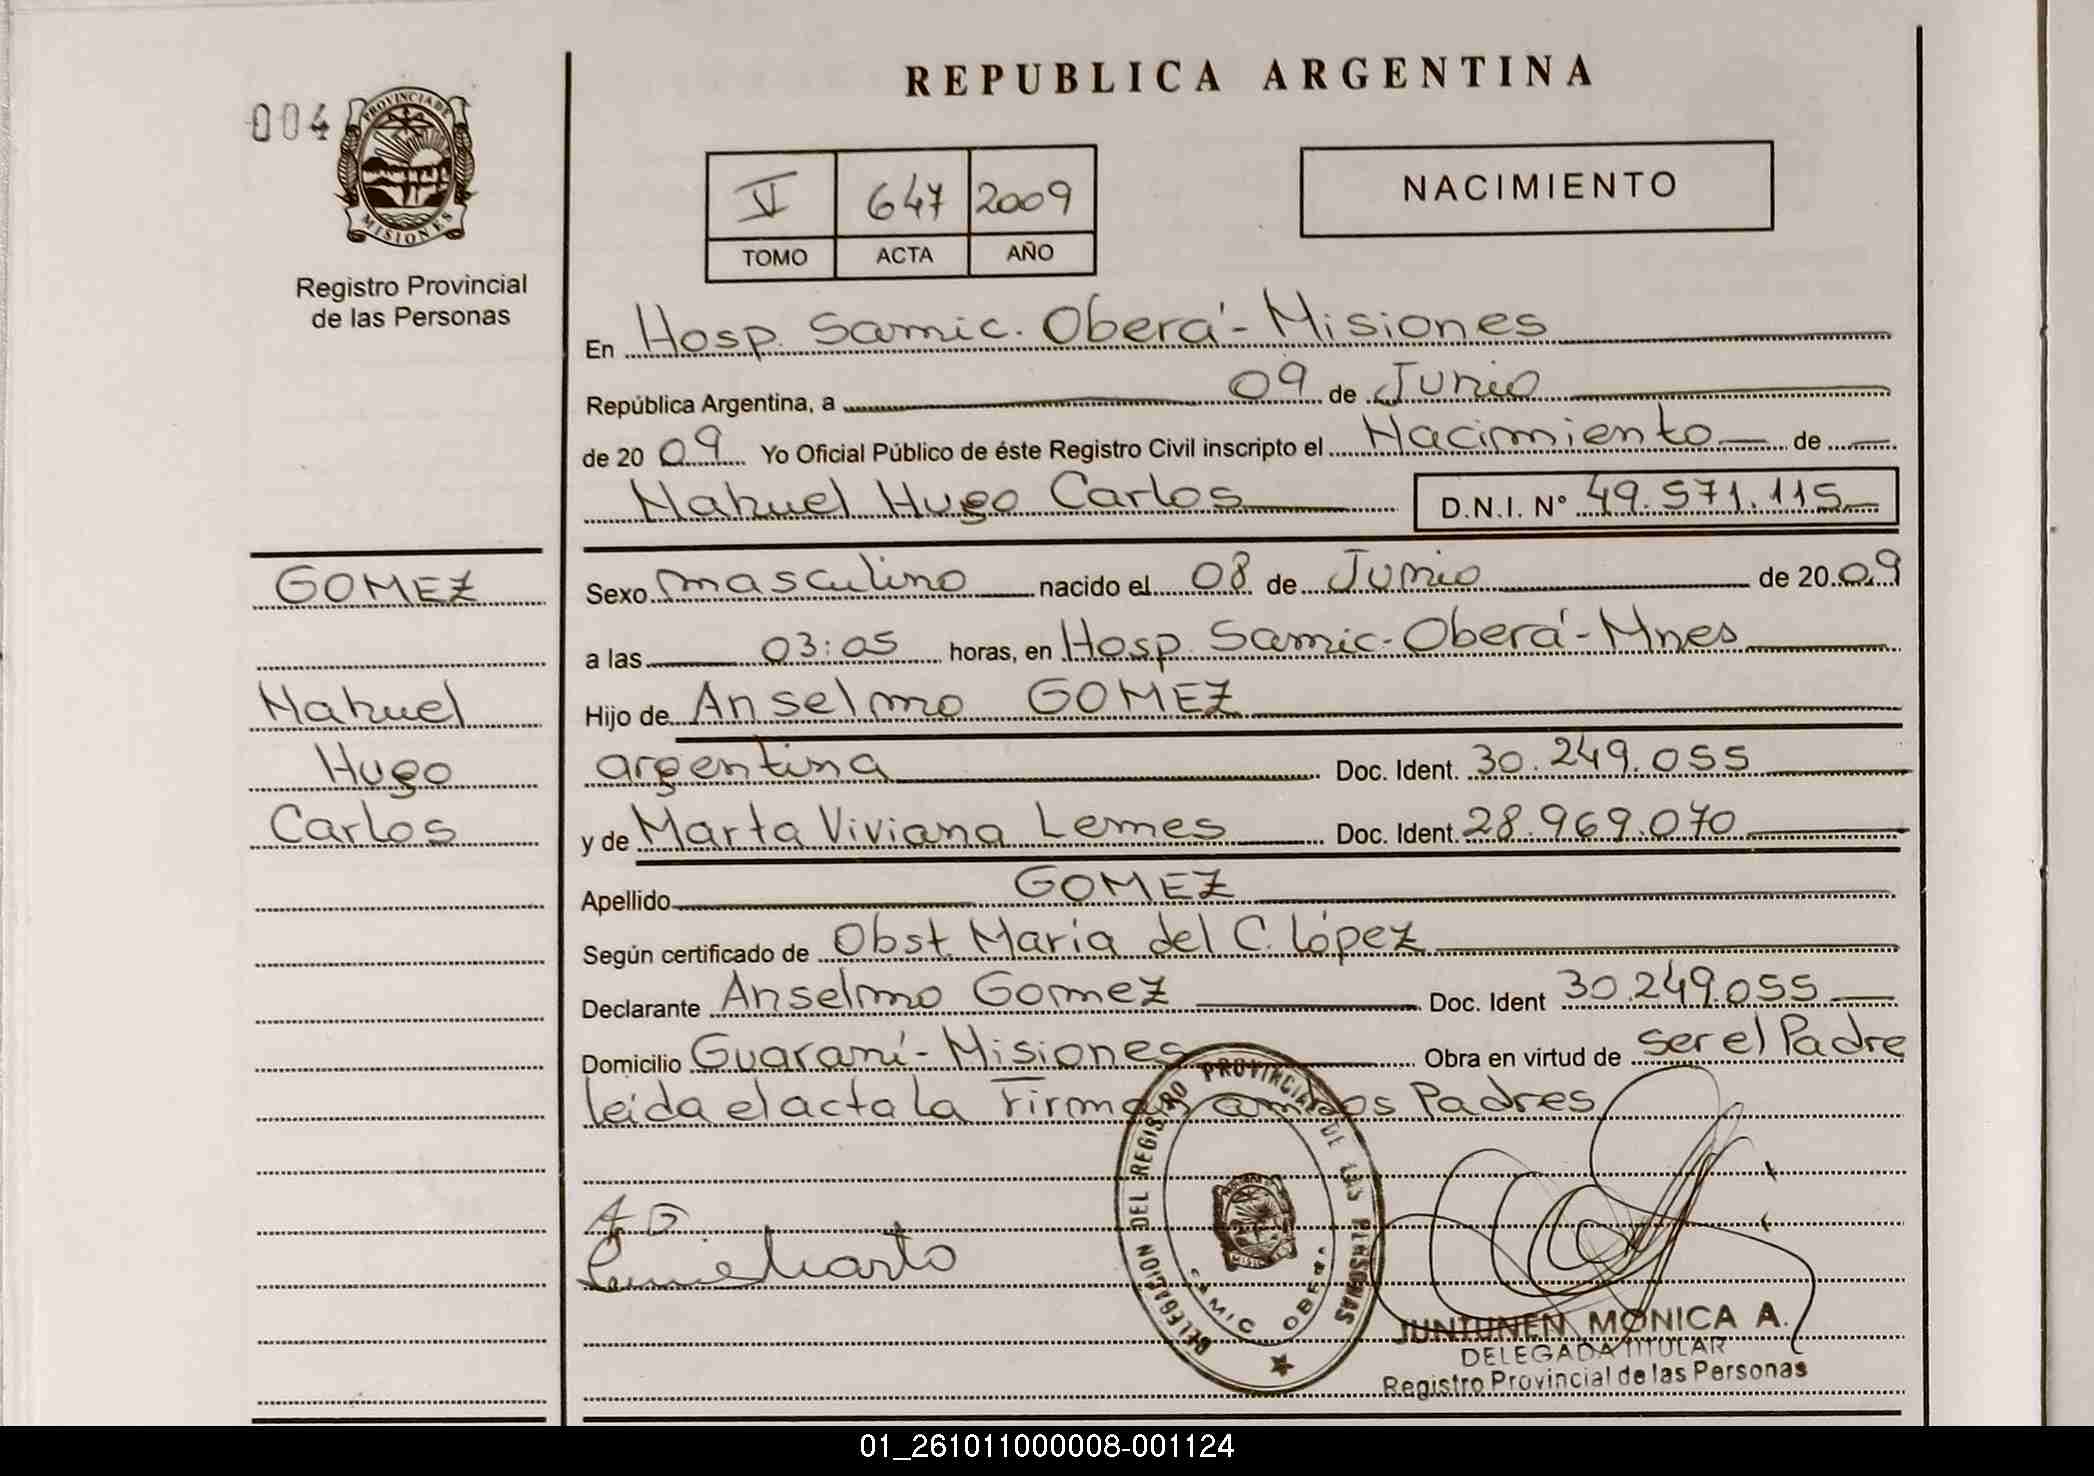 REPUBLICA ARGENTINA
004
PROVINCIA DE
MISIONES
Registro Provincial
de las Personas
V 647 2009
TOMO ACTA AÑO
NACIMIENTO
En Hosp. Samic. Oberá - Misiones
República Argentina, a 09 de Junio
de 20 09 Yo Oficial Público de éste Registro Civil inscripto el Nacimiento de
Nahuel Hugo Carlos D.N.I. N° 49.571.115
GOMEZ
Nahuel
Hugo
Carlos
Sexo masculino nacido el 08 de Junio de 20 09
a las 03:05 horas, en Hosp. Samic - Oberá - Mnes
Hijo de Anselmo GOMEZ
argentina Doc. Ident. 30.249.055
y de Marta Viviana Lemes Doc. Ident. 28.969.070
Apellido GOMEZ
Según certificado de Obst. Maria del C. López
Declarante Anselmo Gomez Doc. Ident 30.249.055
Domicilio Guaraní - Misiones Obra en virtud de ser el Padre
leída el acta la Firman ambos Padres
A G
DELEGACION DEL REGISTRO PROVINCIAL DE LAS PERSONAS
SAMIC OBERA
JUNTUNEN MONICA A.
DELEGADA TITULAR
Registro Provincial de las Personas
01_261011000008-001124